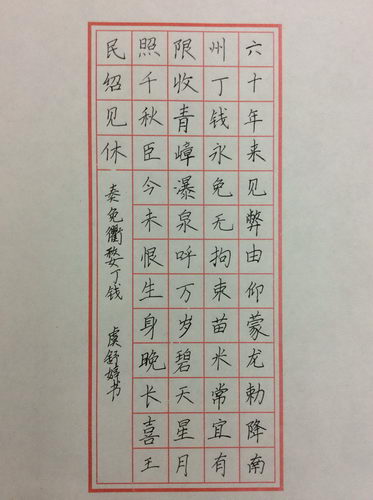 六十年来见弊由仰蒙龙勅降南
州丁钱永免无拘束苗米常宜有
限收青嶂瀑泉呼万岁碧天星月
照千秋臣今未恨生身晚长喜王
民绍见休
奏免衢婺丁钱 虞舒婷书